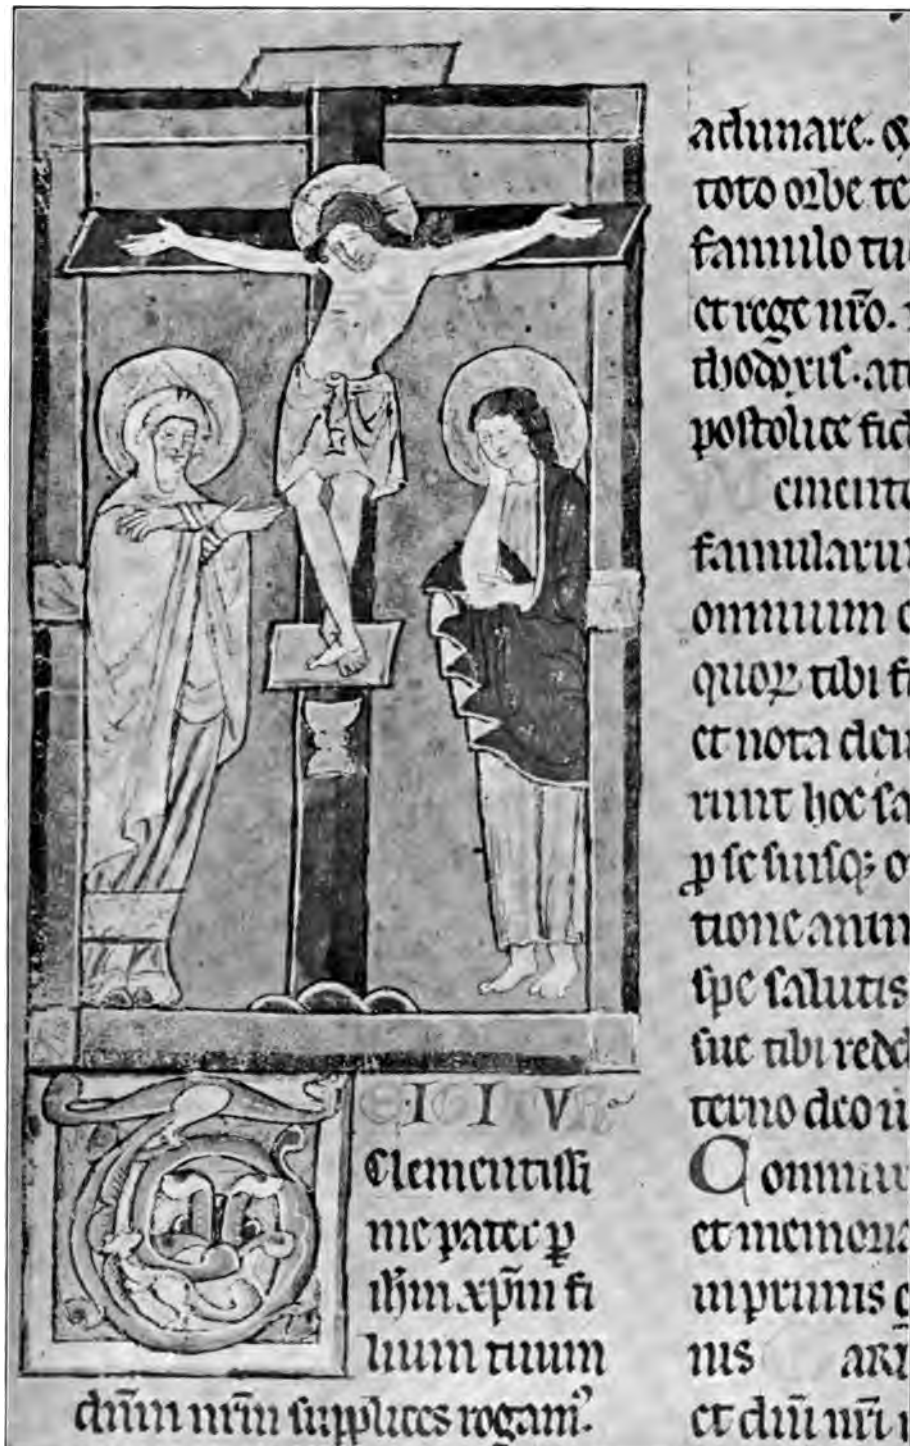 E·IGITVR
Clementissi
me pater p̲
ih̅m xp̅m fi
lium tuum
dn̅m nr̅m supplices rogam᾿
adunare. &
toto orbe te
famulo tu
et rege nr̅o.
thodo
postolice fid
emento
famularu
omnium c
quoꝝ tibi fi
et nota deu
runt hoc sa
ꝓ se suisqꝫ o
tione anim
spe salutis
sue tibi redd
terno deo u
Commun
et memoria
inprimis g
nis ari
et dn̅i nr̅i